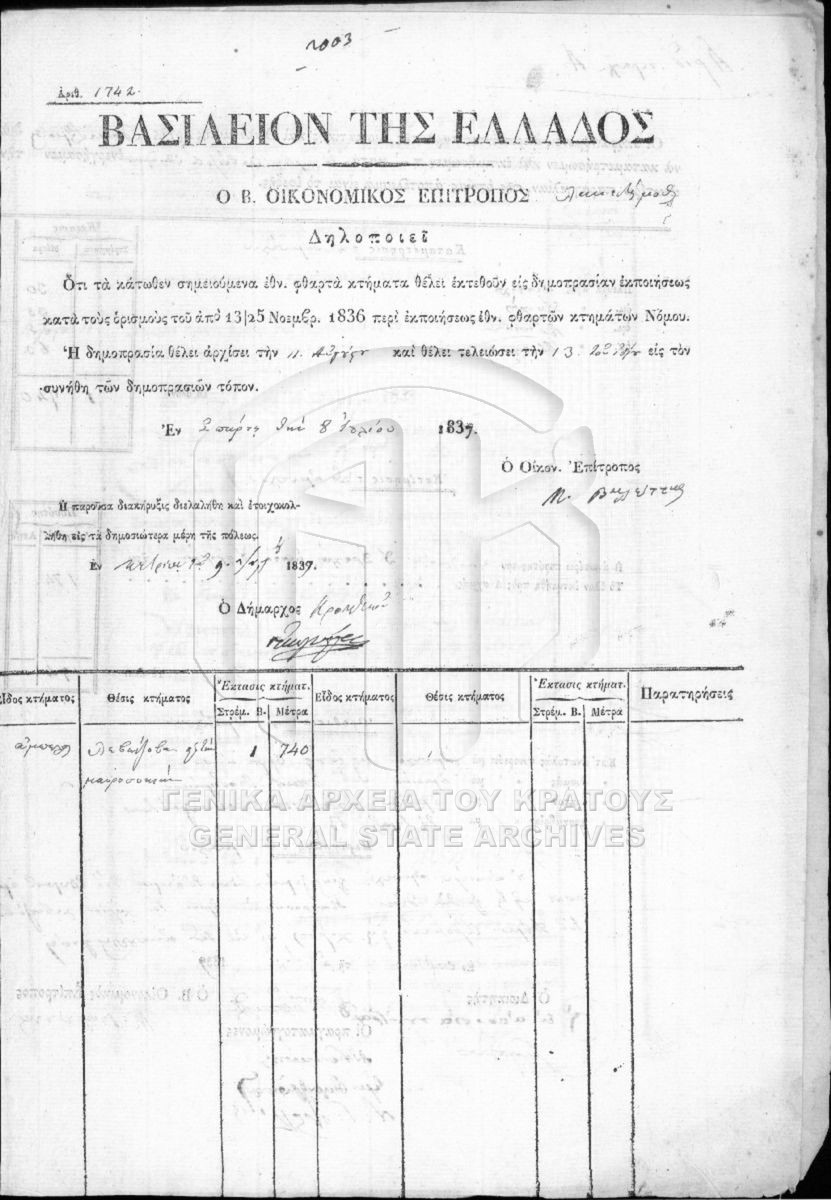 2003
Ἀριθ. 1742.
ΒΑΣΙΛΕΙΟΝ ΤΗΣ ΕΛΛΑΔΟΣ
Ο Β. ΟΙΚΟΝΟΜΙΚΟΣ ΕΠΙΤΡΟΠΟΣ
Δηλοποιεῖ
Ὅτι τὰ κάτωθεν σημειούμενα ἐθν. φθαρτὰ κτήματα θέλει ἐκτεθοῦν εἰς δημοπρασίαν ἐκποιήσεως
κατὰ τοὺς ὁρισμοὺς τοῦ ἀπὸ 13|25 Νοεμβρ. 1836 περὶ ἐκποιήσεως ἐθν. φθαρτῶν κτημάτων Νόμου.
Ἡ δημοπρασία θέλει ἀρχίσει τὴν 11 καὶ θέλει τελειώσει τὴν 13 εἰς τὸν
συνήθη τῶν δημοπρασιῶν τόπον.
Ἐν Σπάρτῃ τὴν 8 Ἰουλίου 1837.
Ὁ Οἰκον. Ἐπίτροπος
Ἡ παροῦσα διακήρυξις διελαλήθη καὶ ἐτοιχοκολ-
λήθη εἰς τὰ δημοσιώτερα μέρη τῆς πόλεως.
Ἐν 1837.
Ὁ Δήμαρχος
Εἶδος κτήματος Θέσις κτήματος Ἔκτασις κτήματ. Εἶδος κτήματος Θέσις κτήματος Ἔκτασις κτήματ. Παρατηρήσεις
Στρέμ. Β. Μέτρα Στρέμ. Β. Μέτρα
ἄμπελος 1 740
ΓΕΝΙΚΑ ΑΡΧΕΙΑ ΤΟΥ ΚΡΑΤΟΥΣ
GENERAL STATE ARCHIVES